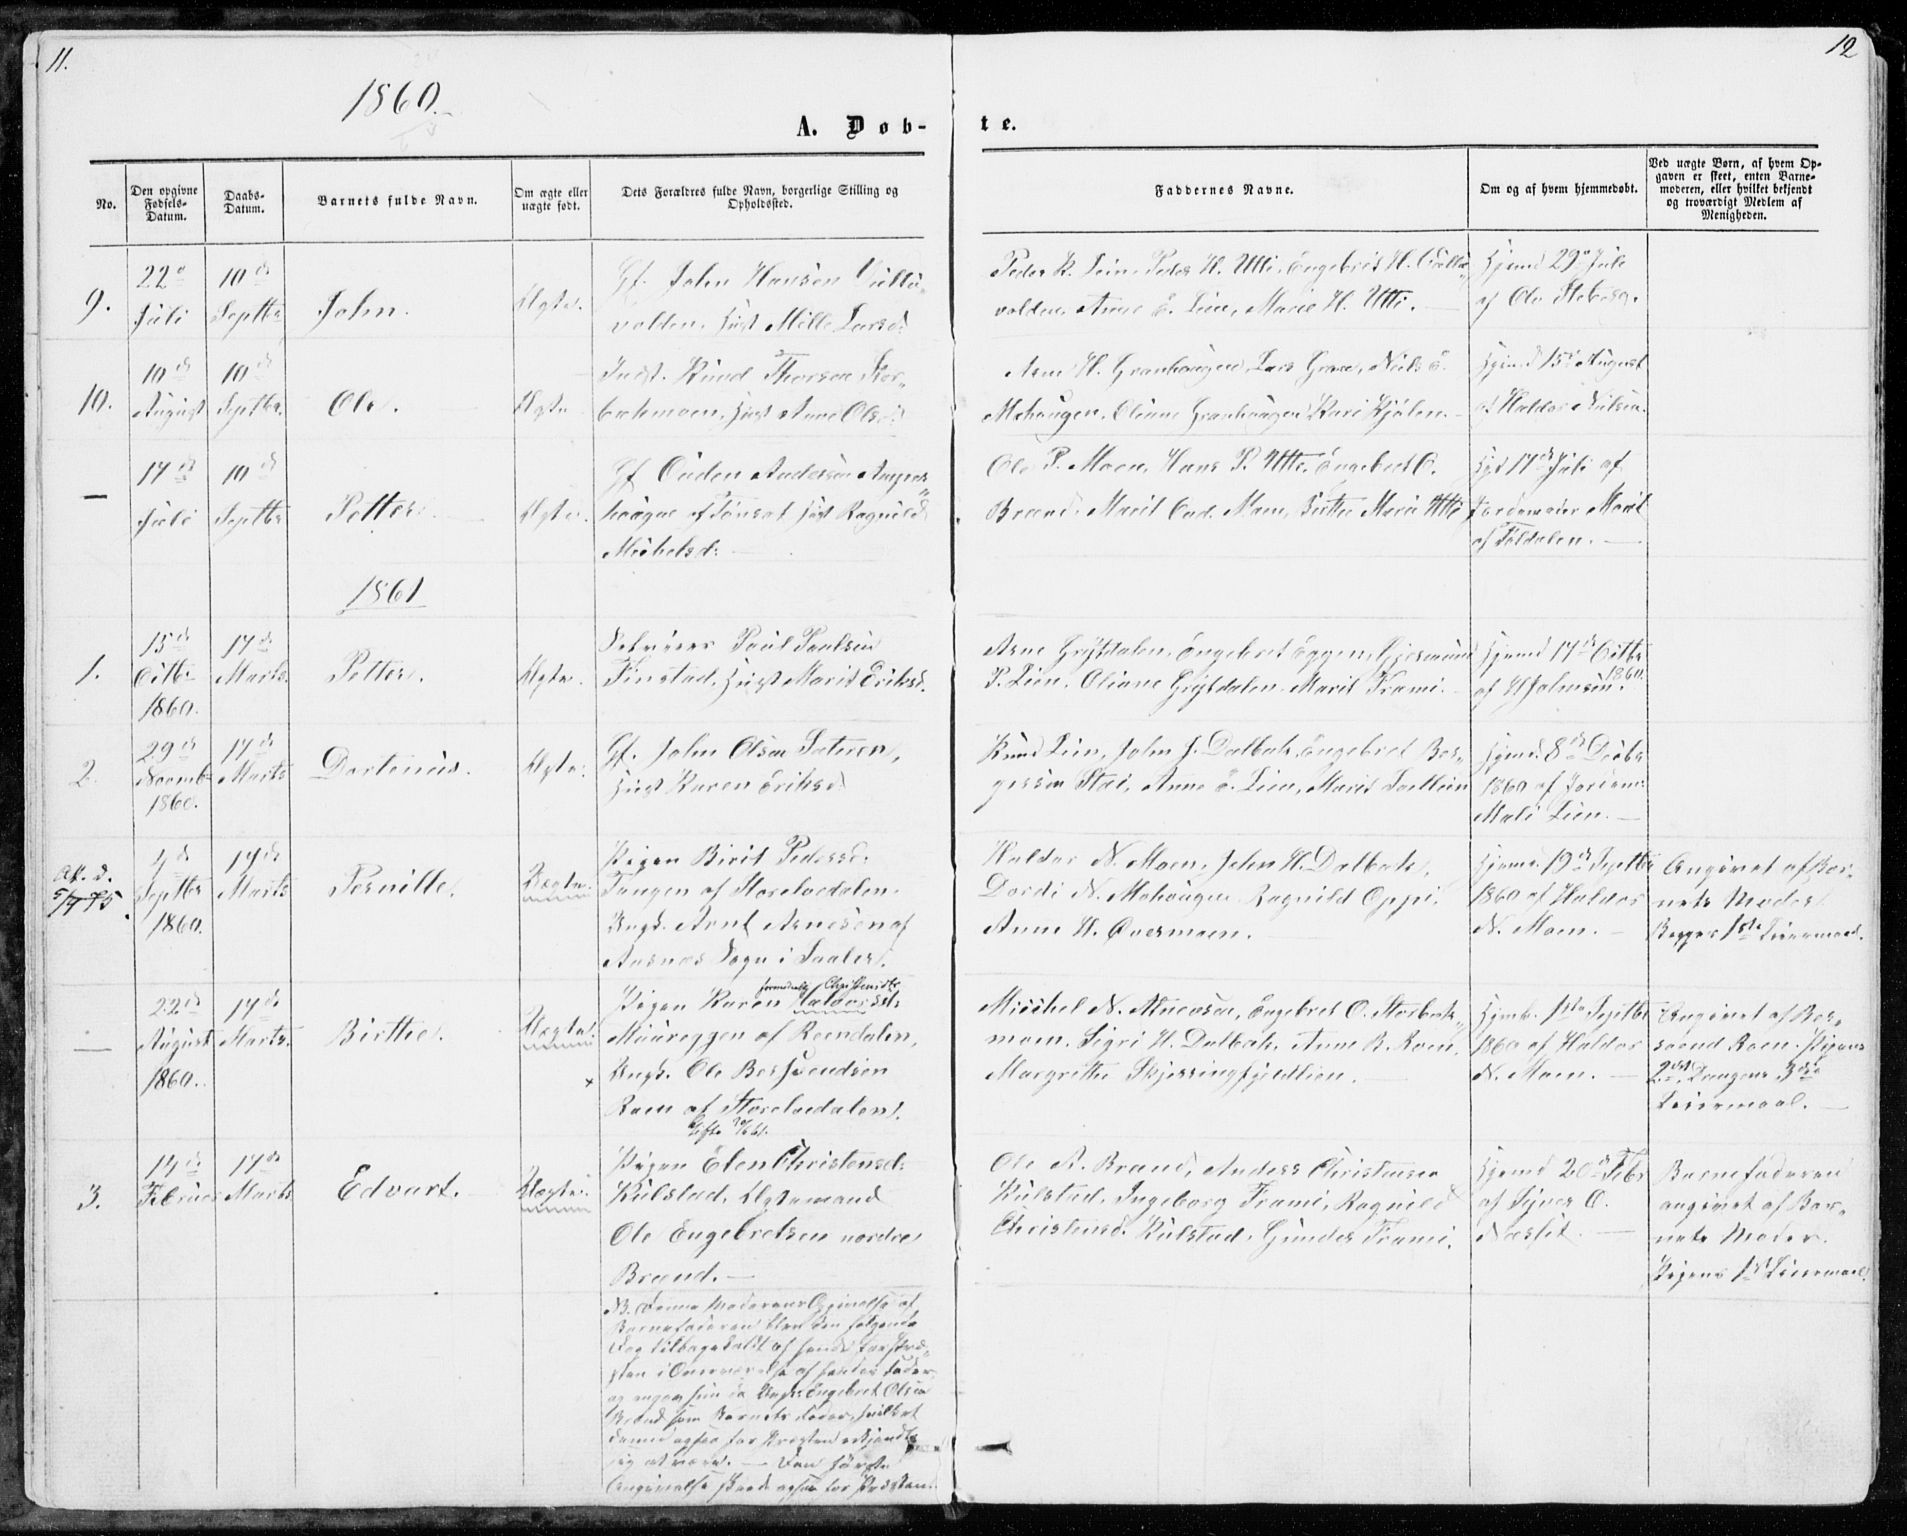 11.
12
1860.
A. Døb-
te.
No.
Den opgivne
Fødsels-
Datum.
Daabs-
Datum.
Barnets fulde Navn.
Om ægte eller
uægte født.
Dets Forældres fulde Navn, borgerlige Stilling og
Opholdssted.
Faddernes Navne.
Om og af hvem hjemmedøbt.
Ved uægte Børn, af hvem Op-
gaven er skeet, enten Barne-
moderen, eller hvilket bekjendt
og troværdigt Medlem af
Menigheden.
9.
22de
Juli
10de
Septbr
John.
Ægte.
Gf. John Hansen
volden, Hust Mille Larsd:
Peder K. Lien, Peder H. Utti, Engebret H.
volden, Anne E. Lien, Marie H. Utti.
Hjemd 29de Juli
af Ole
10.
10de
August
10de
Septbr.
Ole.
Ægte
Indst. Knud Thorsen Stor-
bækmoen, Hust Anne Olsd:
Arne H. Granhaugen, Lars Grane, Niels E.
Mohaugen, Oliane Granhaugen Kari Kjølen.
Hjemd 15de August
af Haldor Nilsen.
17de
Juli
10de
Septbr
Petter.
Ægte.
Gf Ouden Andersen
af Tønset Hust Ragnild
Mikkelsd:
Ole P. Moen, Hans P. Utti, Engebret O.
Brænd. Marit Moen, Birthe Marie Utti
17de Juli af
Jordemoder Marit
af Foldalen.
1861
1.
15de
Octbr
1860.
17de
Marts.
Petter.
Ægte.
Selveier Paul Paulsen
Finstad, Hust Marit Eriksd.
Arne Grytdalen, Engebret Eggen, Gjermund
P. Lien. Oliane Grytdalen Marit Frami.
Hjemd 17de Octbr
1860.
af
2.
29de
Novemb
1860.
17de
Marts
Dortenius.
Ægte.
Gf. John Olsen Sæteren,
Hust Karen Eriksd
Knud Lien, John J. Dalbak. Engebret Ber-
gersen Stai, Anne E. Lien, Marit
Hjemd. 8de Decbr
1860 af Jordem:
Mali Lien.
4de
Septbr
1860.
17de
Marts
Pernille.
Uægte.
Pigen Birit Pedersd:
Tangen af Storelvedalen.
Ungk. Arnt Arnesen af
Aasnæs Sogn i Soler.
Haldor N. Moen, John H. Dalbak,
Dordi N. Mohaugen Ragnild Oppi.
Anne H. Øvermoen.
Hjemd. 19de Septbr
1860 af Haldor
N. Moen.
Angivet af Bar-
nets Moder.
Begges 1ste Leiermaal.
22de
August
1860.
17de
Marts.
Birthe.
Uægte.
Pigen Karen Halvorsd:
af Rendalen,
Ungk. Ole Bersvendsen
Roen af Storelvedalen.
Mikkel N. Engebret O. Storbæk-
moen. Sigri H. Dalbak. Anne B. Roen,
Margrethe
1ste Septbr
1860 af Haldor
N. Moen.
Angivet af Ber-
svend Roen. Pigens
2det, Drengens 3die
Leiermaal.
3.
14de
Februar
17de
Marts
Edvart.
Uægte.
Pigen Elen Christensd:
Kulstad, Ægtemand
Ole Engebretsen nordre
Brænd.
Ole A. Brænd, Anders Christensen
Kulstad, Ingeborg Frami, Ragnild
Christensd. Kulstad. Gunder Frami.
Hjemd 20de Febr
af O.
Næslit.
Barnefaderen
angivet af Bar-
nets Moder.
Pigens 1ste Leiermaal.
NB. Denne Moderens Opgivelse af
Barnefaderen blev den følgende
Dag tilbagekaldt af hende for Præ-
sten i Overværelse af hendes Fader
og angav hun da Ungk. Engebret Olsen
Brænd som Barnets Fader, hvilket
denne ogsaa for Præsten erkjendte
sig at være. — Den første
Angivelse skede ogsaa for Præsten.